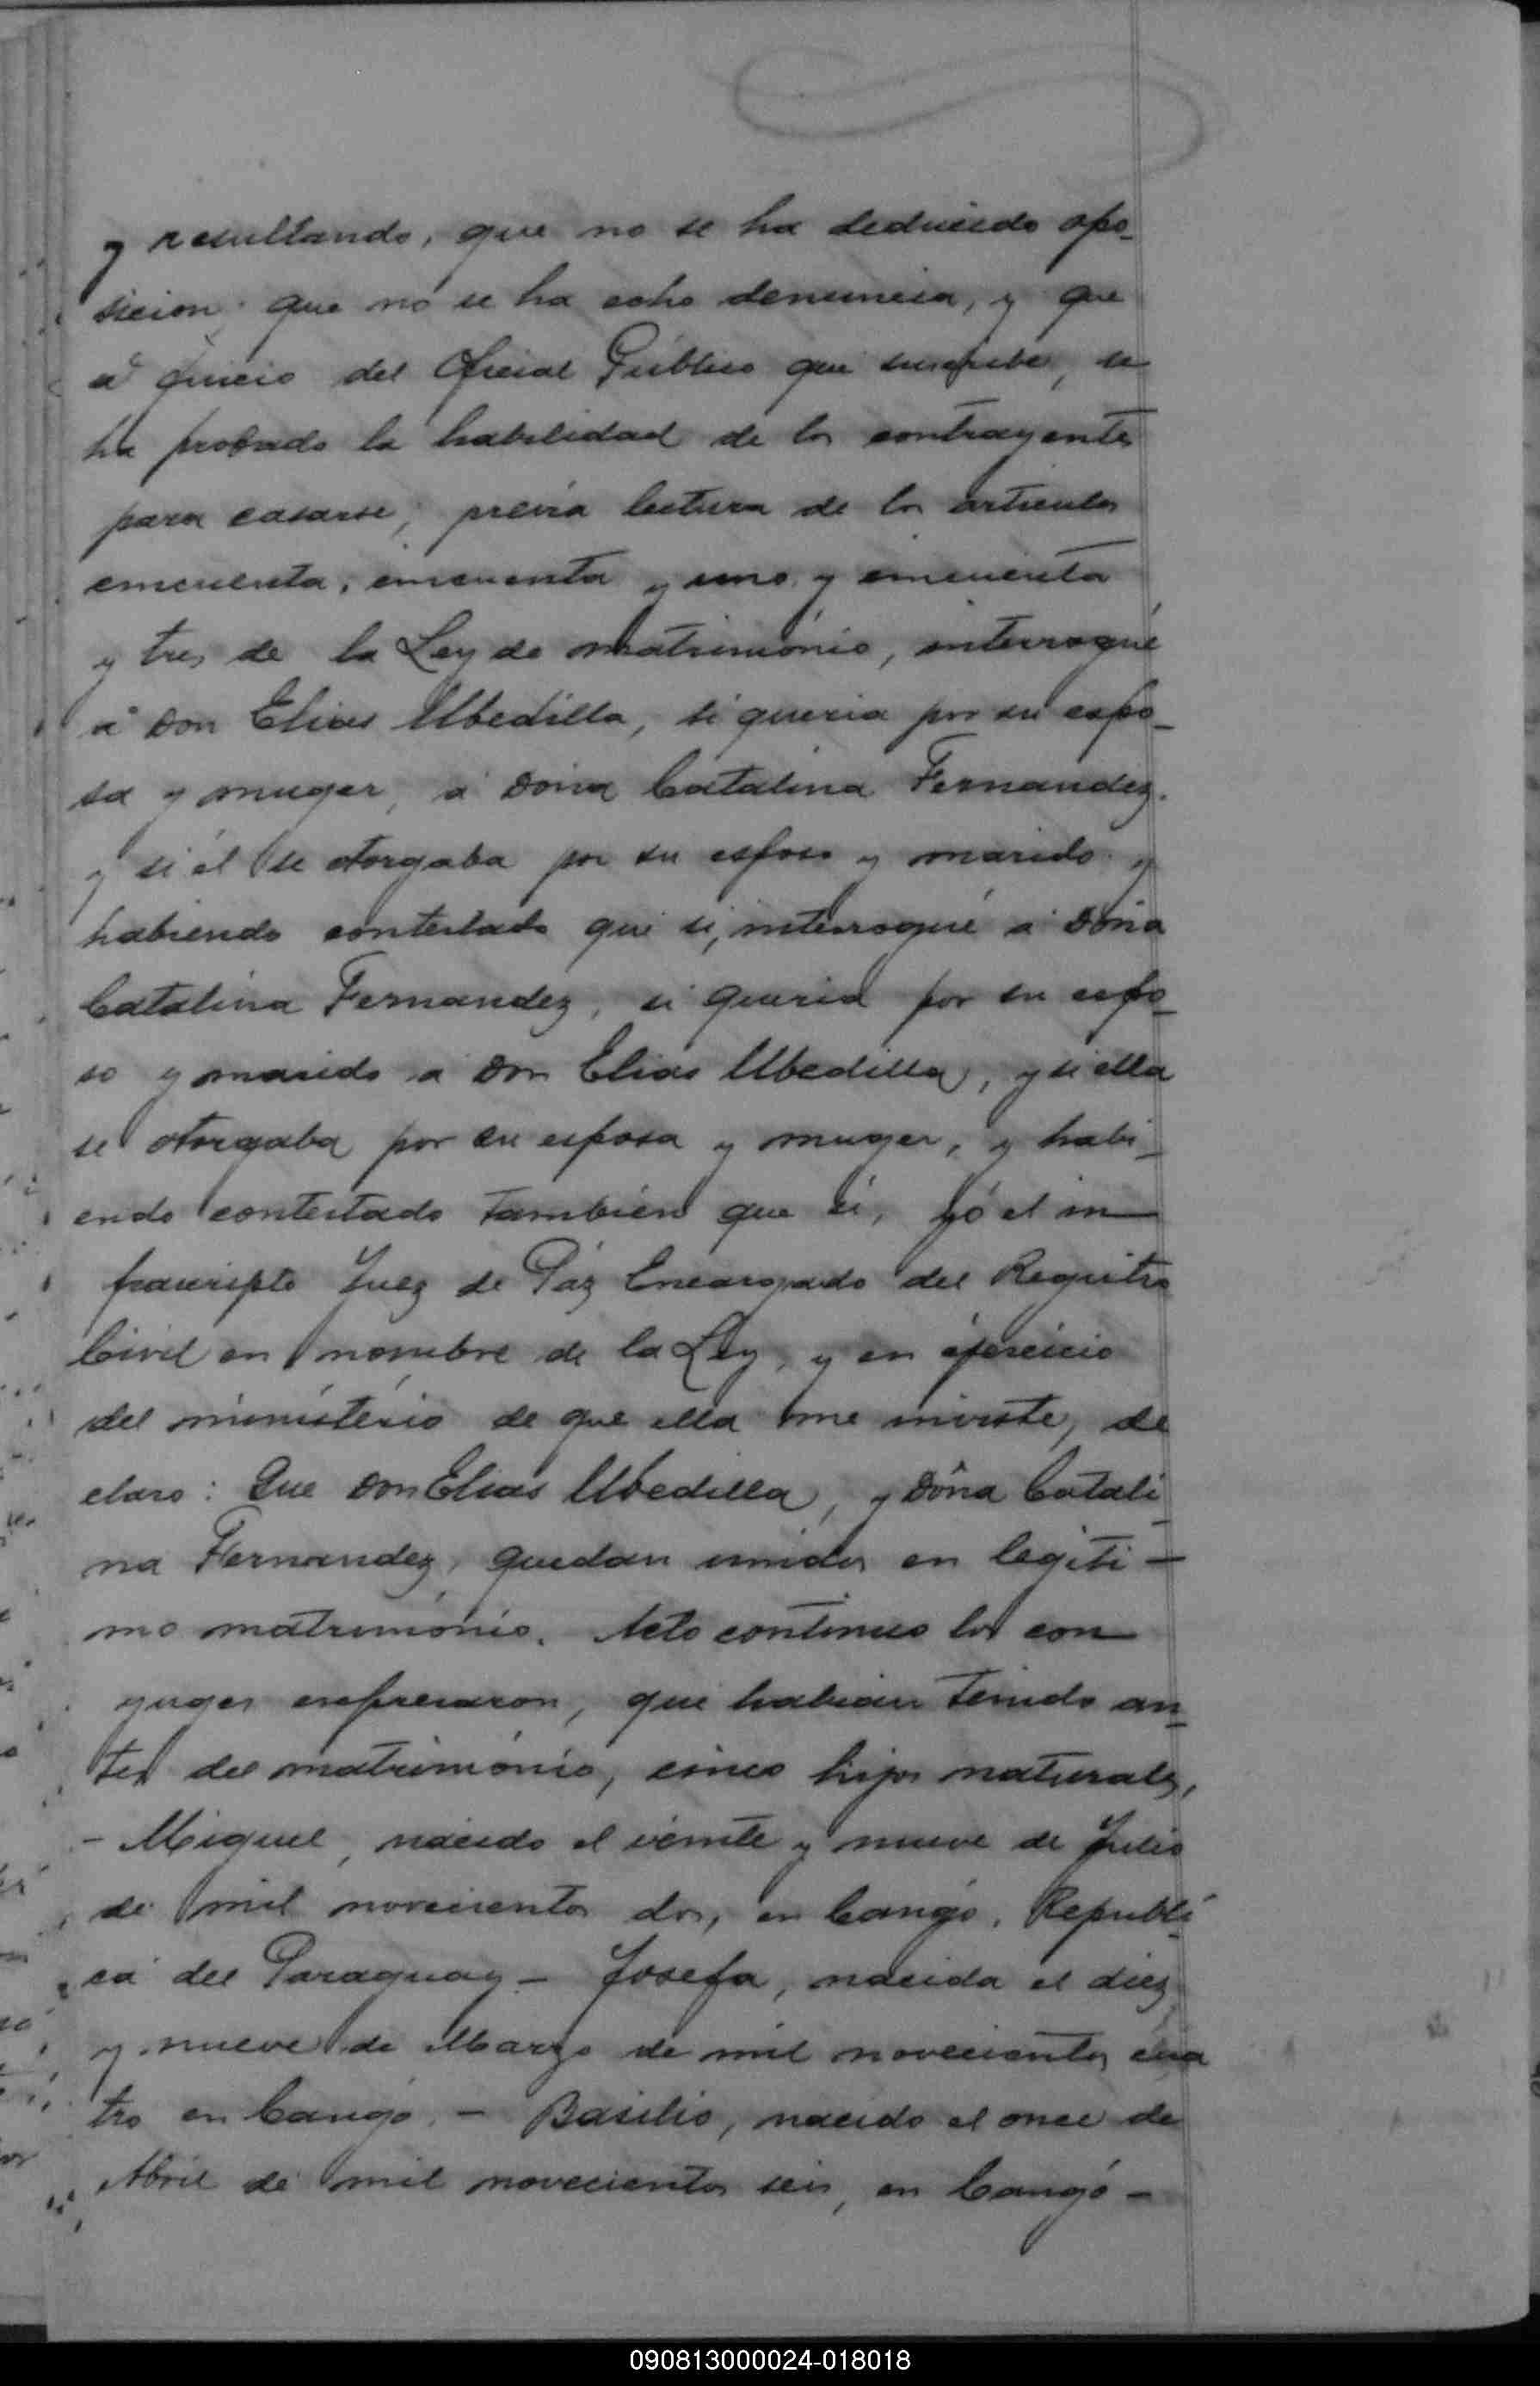 y resultando, que no se ha deducido opo-
sicion. que no se ha echo denuncia, y que
á juicio del Oficial Público que suscribe, se
ha probado la habilidad de los contrayentes
para casarse, previa lectura de los articulos
cincuenta, cincuenta y uno, y cincuenta
y tres de la Ley de matrimónio, interrogué
á Don Elias Ubedilla, si queria por su espo-
sa y muger, á Doña Catalina Fernandez.
y si él se otorgaba por su esposo y marido y
habiendo contestado que si, interrogué á Doña
Catalina Fernandez, si queria por su espo-
so y marido a Don Elias Ubedilla, y si ella
se otorgaba por su esposa y muger, y habi-
endo contestado tambien que si, yó el in-
frascripto Juez de Páz Encargado del Registro
Civil en nombre de la Ley, y en ejercicio
del ministério de que ella me inviste, de
claro: Que Don Elias Ubedilla, y Doña Catali-
na Fernandez, quedan unidos en legiti-
mo matrimónio. Acto continuo los con-
yuges expresaron, que habian tenido an-
tes del matrimónio, cinco hijos naturales,
- Miguel, nacido el veinte y nueve de Julio
de mil novecientos dos, en Cangó, Republi-
ca del Paraguay - Josefa, nacida el diez
y nueve de Marzo de mil novecientos cua
tro en Cangó. - Basilio, nacido el once de
Abril de mil novecientos seis, en Cangó -
090813000024-018018